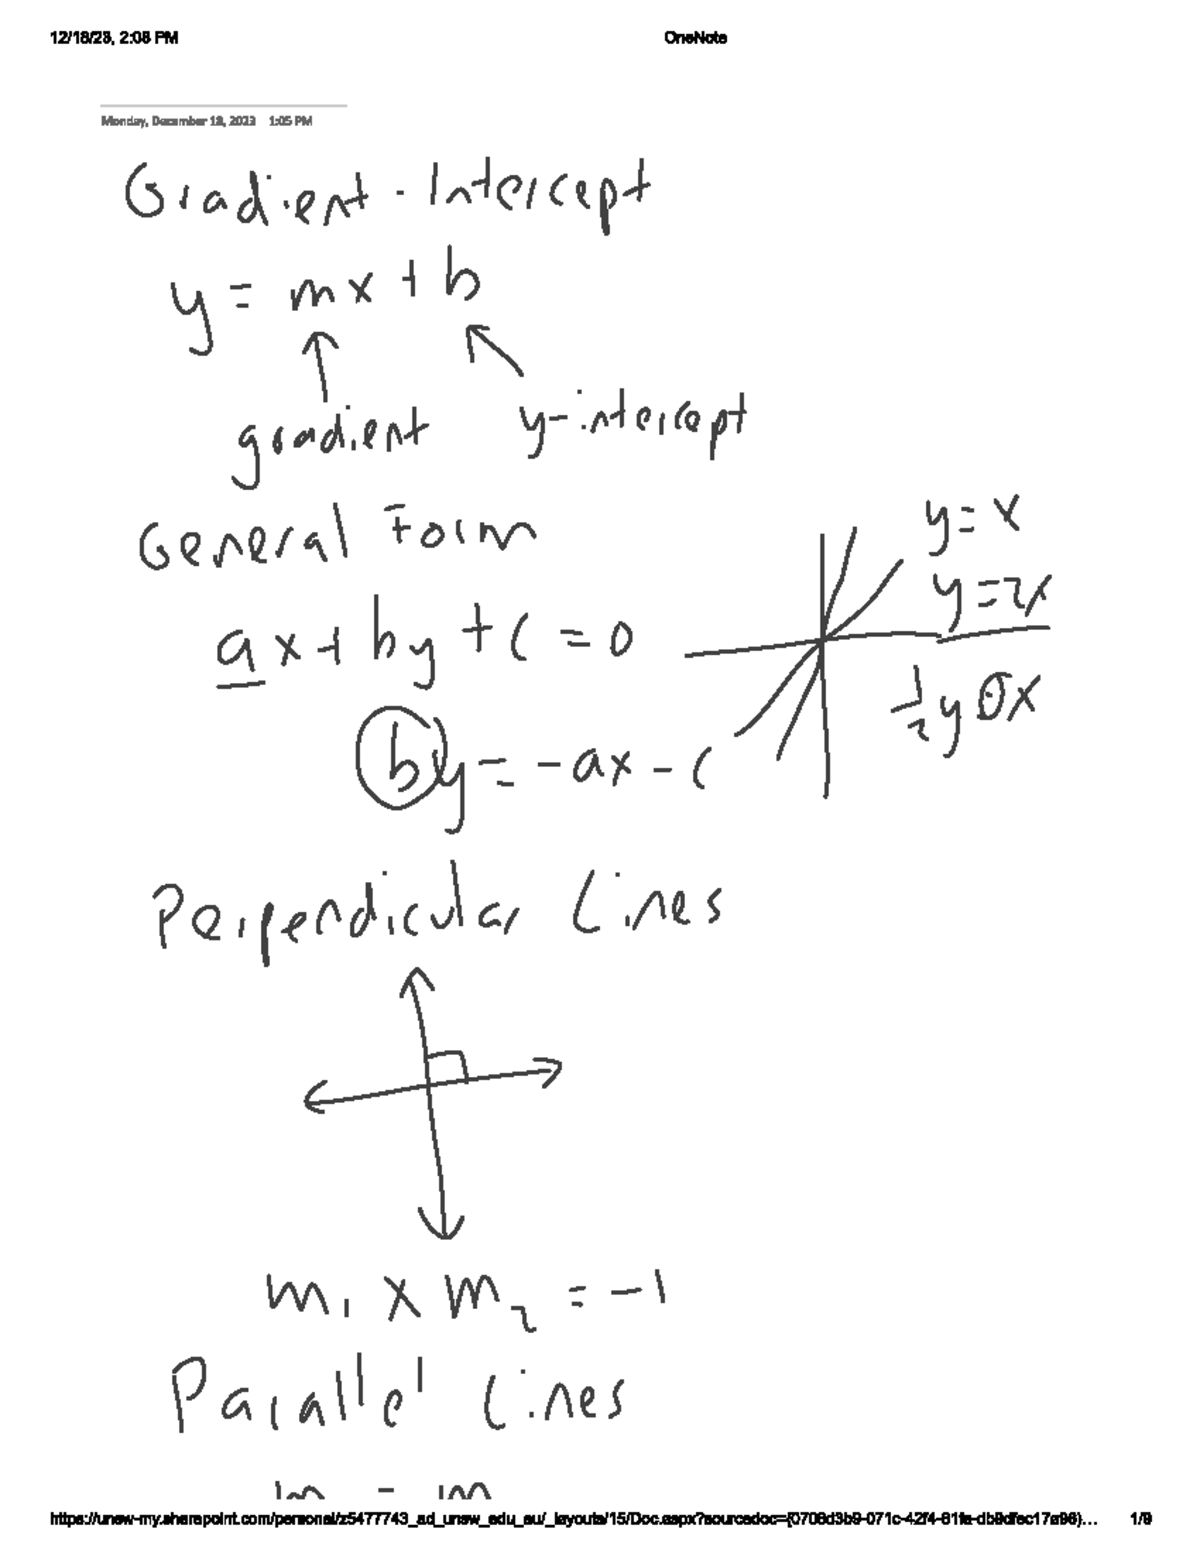 12/18/23, 2:08 PM OneNote
Monday, December 18, 2023 1:05 PM
Gradient - Intercept
y = mx + b
gradient y-intercept
General Form
y = x
y = 2x
ax + by + c = 0
½ y = x
by = -ax - c
Perpendicular Lines
m₁ × m₂ = -1
Parallel Lines
m = m
https://unsw-my.sharepoint.com/personal/z5477743_ad_unsw_edu_au/_layouts/15/Doc.aspx?sourcedoc={0708d3b9-071c-42f4-81fa-db9dfec17a96}... 1/9